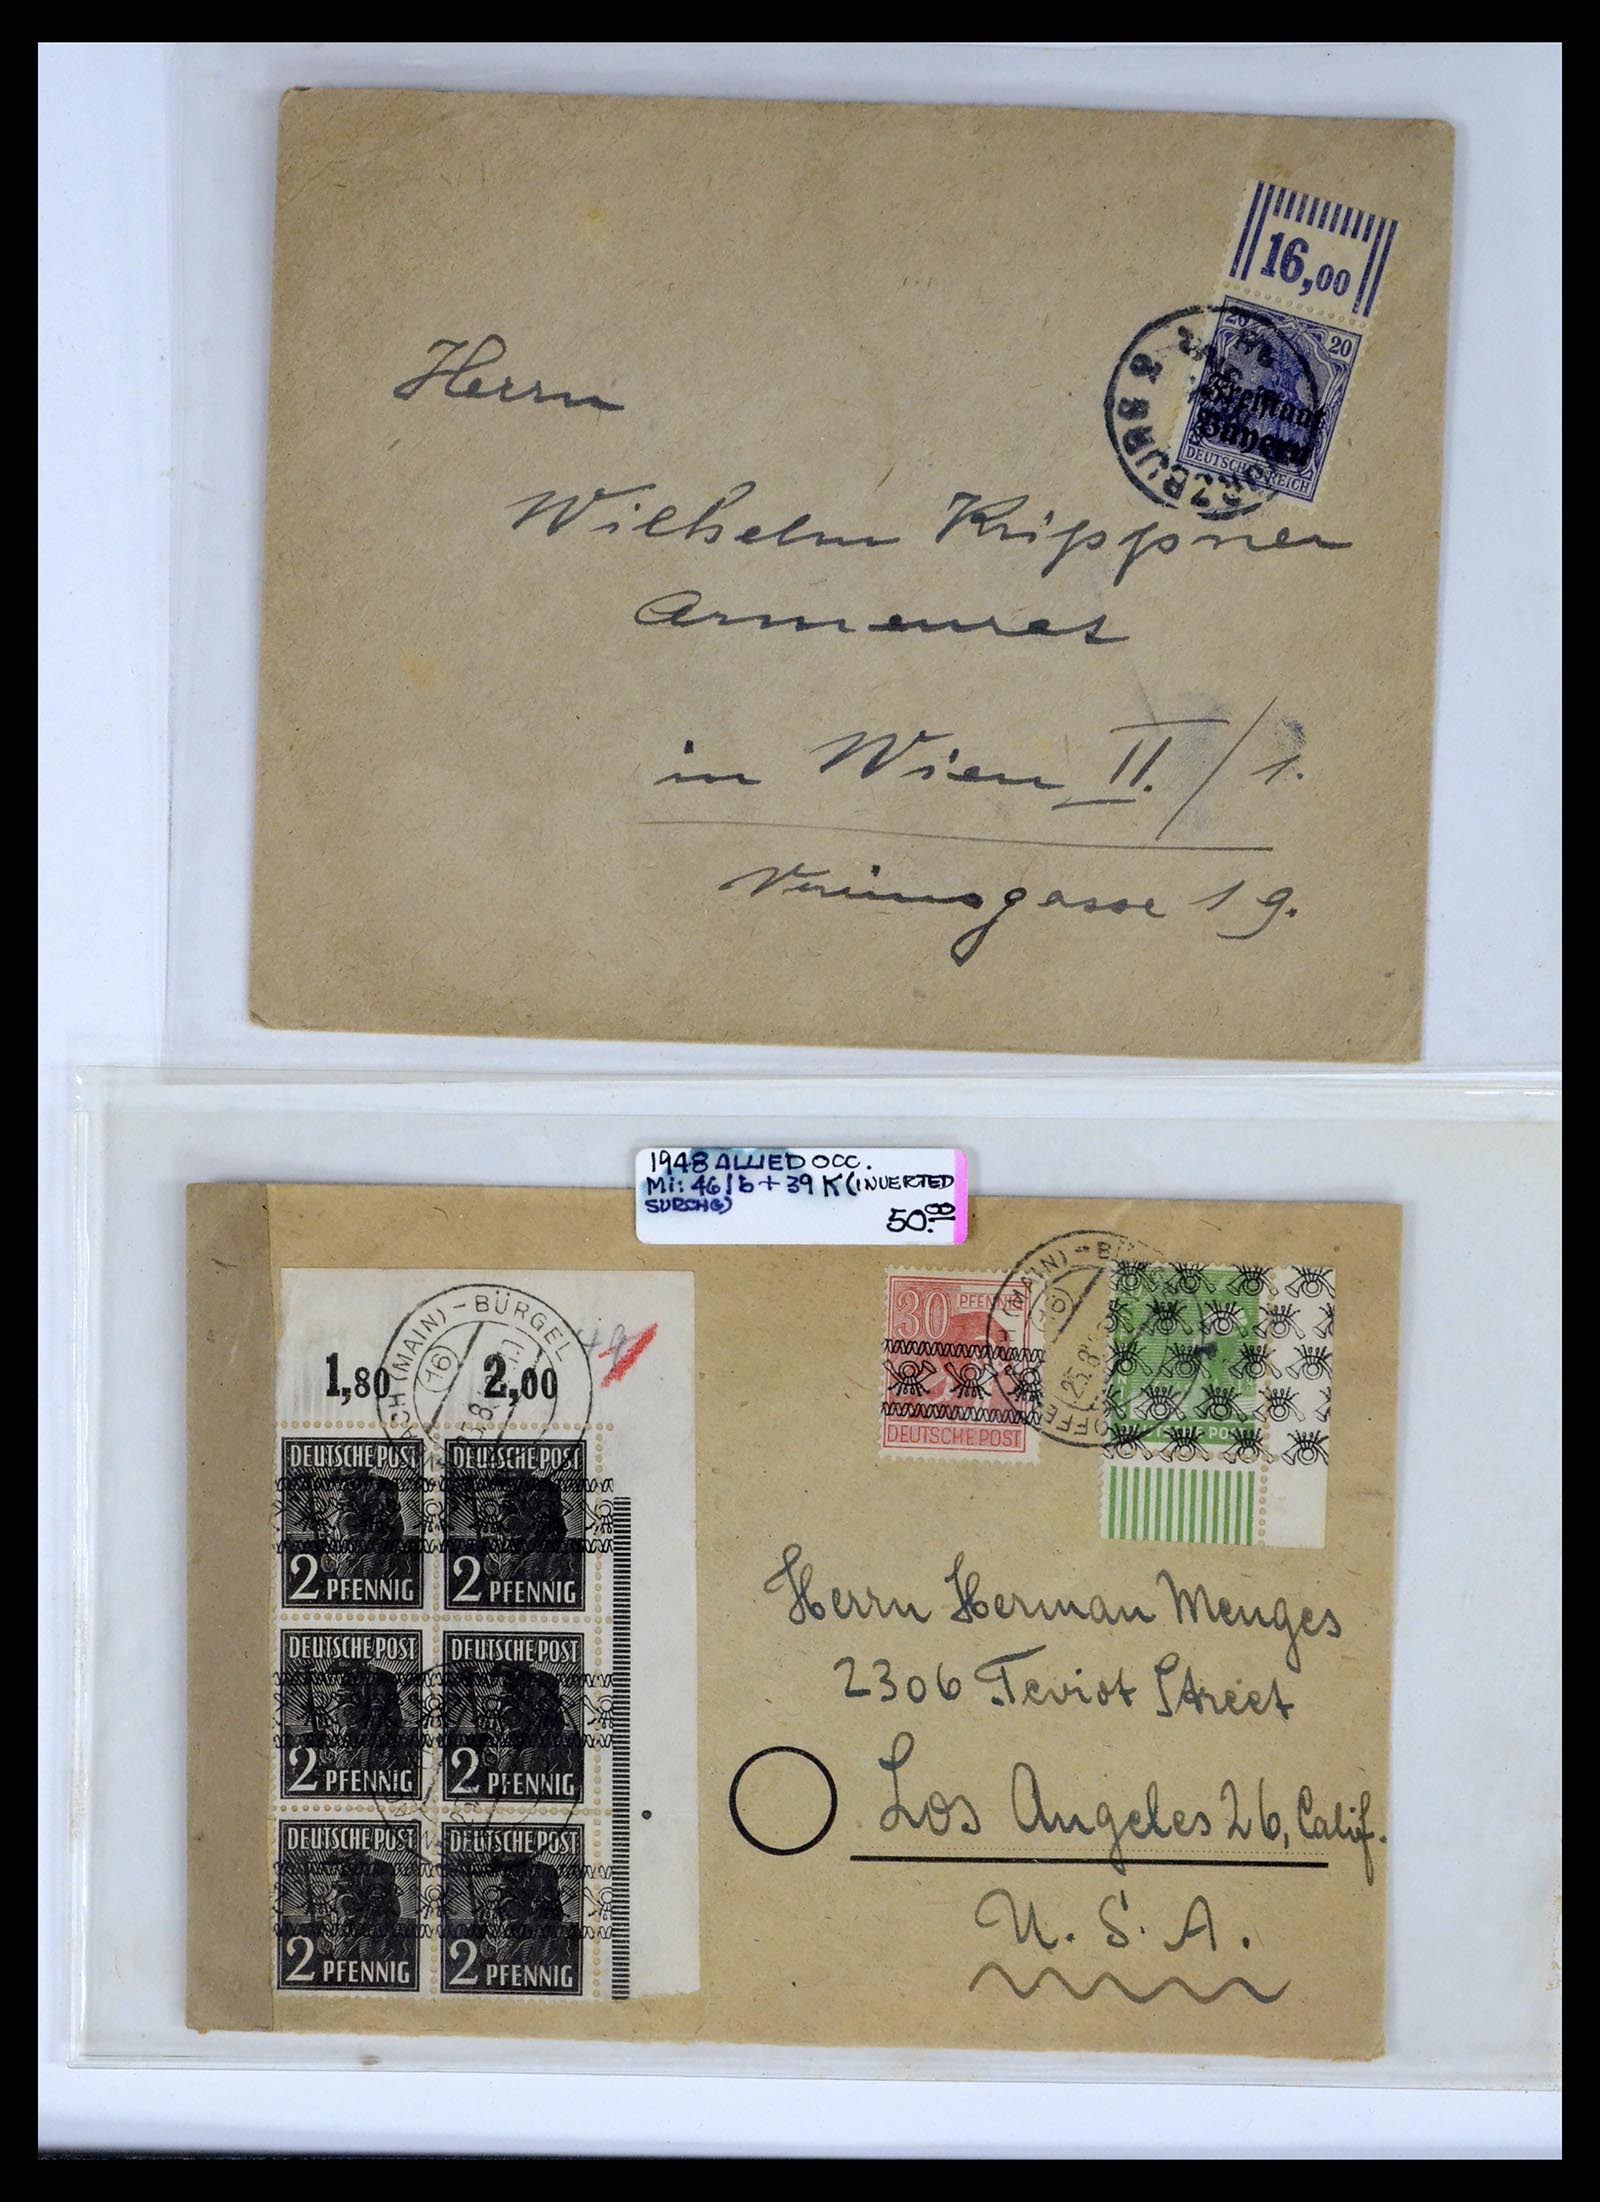 16,00
20 20
Freistaat
Bayern
DEUTSCHES REICH
Herrn
Wilhelm Krippner
in Wien II. / 1.
Vereinsgasse 19.
1948 ALLIED OCC.
Mi: 46 I b + 39 K (INVERTED
SURCHG)
50.00
(MAIN) - BÜRGEL
(16)
1,80 2,00
DEUTSCHE POST DEUTSCHE POST
2 PFENNIG 2 PFENNIG
DEUTSCHE POST DEUTSCHE POST
2 PFENNIG 2 PFENNIG
DEUTSCHE POST DEUTSCHE POST
2 PFENNIG 2 PFENNIG
30 PFENNIG
DEUTSCHE POST
(MAIN) - BÜ
(16)
25.8
OFFE
Herrn Herman Menges
2306 Teviot Street
Los Angeles 26, Calif.
U. S. A.